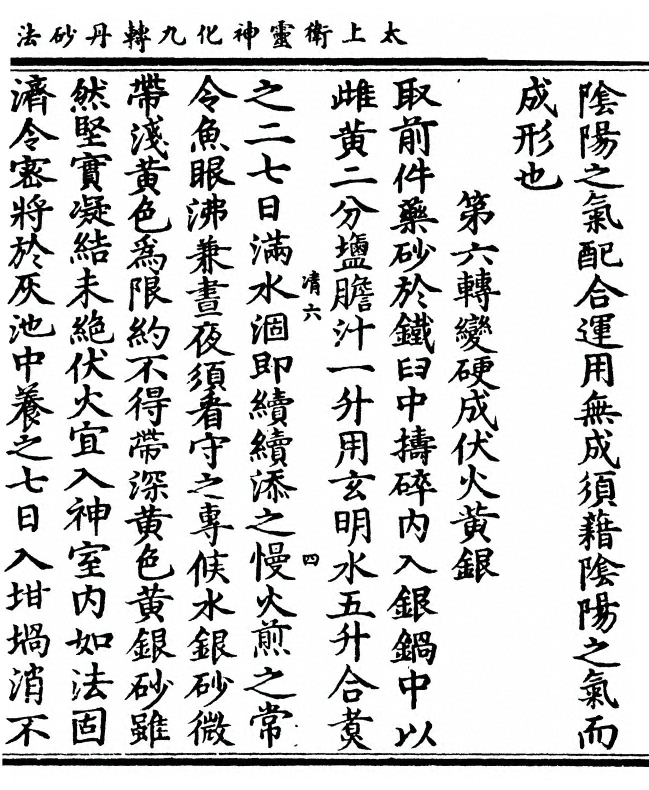 太上衛靈神化九轉丹砂法
陰陽之氣配合運用無成須藉陰陽之氣而
成形也
第六轉變硬成伏火黃銀
取前件藥砂於鐵臼中擣碎内入銀鍋中以
雌黃二分鹽膽汁一升用玄明水五升合煑
清六
四
之二七日滿水涸即續續添之慢火煎之常
令魚眼沸兼晝夜須看守之專候水銀砂微
帶淺黃色爲限約不得帶深黃色黃銀砂雖
然堅實凝結未絶伏火宜入神室内如法固
濟令宻將於灰池中養之七日入坩堝消不